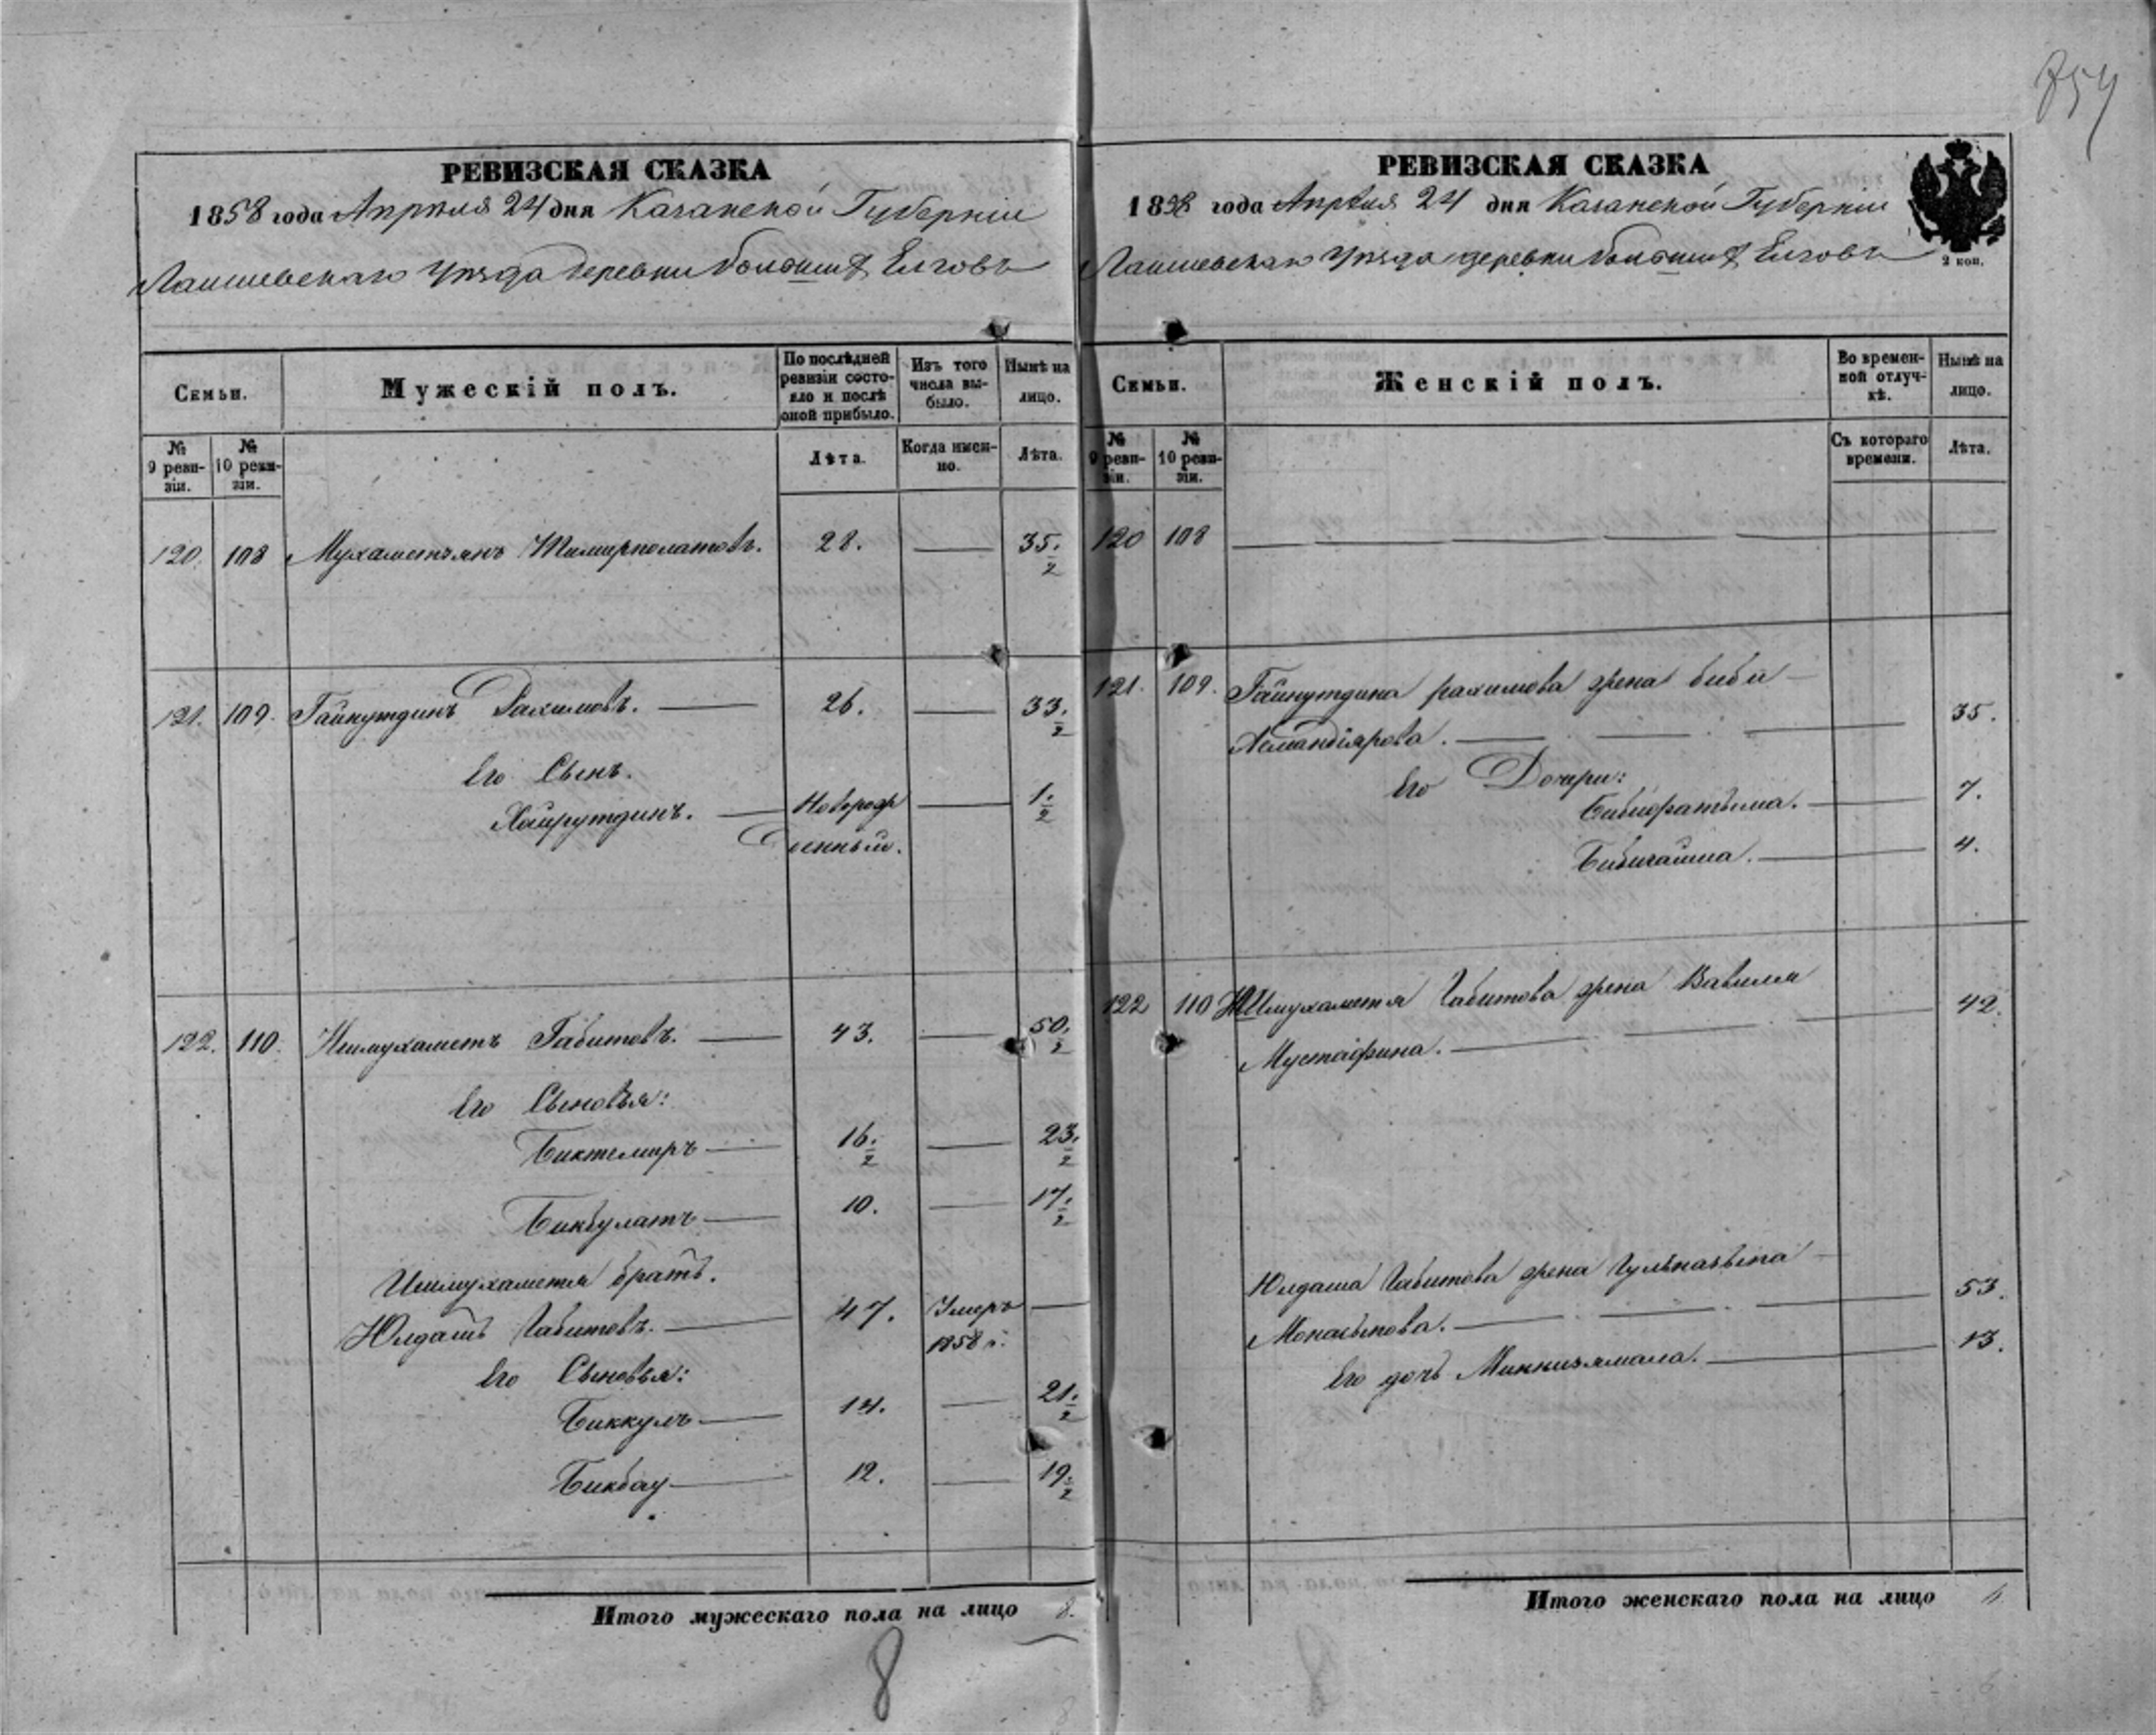 754
РЕВИЗСКАЯ СКАЗКА
1858 года Апреля 24 дня Казанской Губернии
Лаишевскаго Уезда деревни больших Елговъ
Семьи.
Мужескій полъ.
По послѣдней ревизіи состояло и послѣ оной прибыло.
Изъ того числа выбыло.
Нынѣ на лицо.
№ 9 ревизіи.
№ 10 ревизіи.
Лѣта.
Когда именно.
Лѣта.
120. 108 Мухаметзянъ Тимирполатовъ. 28. — 35.
2
121. 109. Гайнутдинъ Рахимовъ. — 26. — 33.
2
Его Сынъ.
Хайрутдинъ. — Новорож — 1.
2
денный.
122. 110. Ишмухаметъ Габитовъ. — 43. — 50.
2
Его Сыновья:
Биктемиръ — 16. — 23.
2 2
Бикбулатъ — 10. — 17.
2
Ишмухаметя братъ.
Юлдашъ Габитовъ. — 47. Умеръ —
1858 г.
Его Сыновья:
Биккулъ — 14. — 21.
2
Бикбау — 12. — 19.
2
Итого мужескаго пола на лицо 8.
8
РЕВИЗСКАЯ СКАЗКА
1858 года Апреля 24 дня Казанской Губернии
Лаишевскаго Уезда деревни больших Елговъ
2 коп.
Семьи.
Женскій полъ.
Во временной отлучкѣ.
Нынѣ на лицо.
№ 9 ревизіи.
№ 10 ревизіи.
Съ котораго времени.
Лѣта.
120 108 — — — —
121. 109. Гайнутдина рахимова жена биби —
Асмандіярова. — — — 35.
Его Дочери:
Бибифатыма. — 7.
Бибигайша. — 4.
122 110 Ишмухаметя Габитова жена Вавиля
Мустафина. — — — 42.
Юлдаша Габитова жена Гульназыпа —
Монасыпова. — — — 53.
Его дочь Миннизямала. — 13.
Итого женскаго пола на лицо